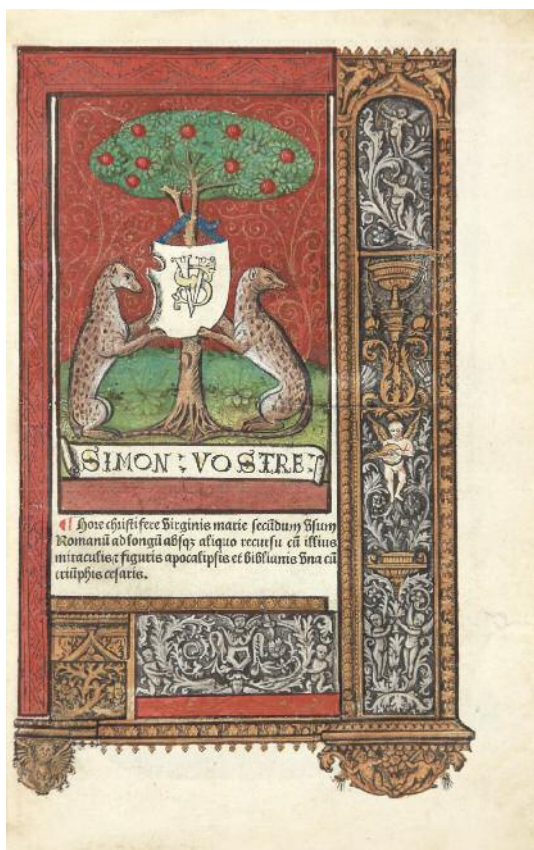 SV
SIMON : VOSTRE :
¶ Hore christifere Virginis marie secūdum Vsum
Romanū ad longū absqꝫ aliquo recursu cū illius
miraculis ⁊ figuris apocalipsis et biblianis Vna cū
triūphis cesaris.